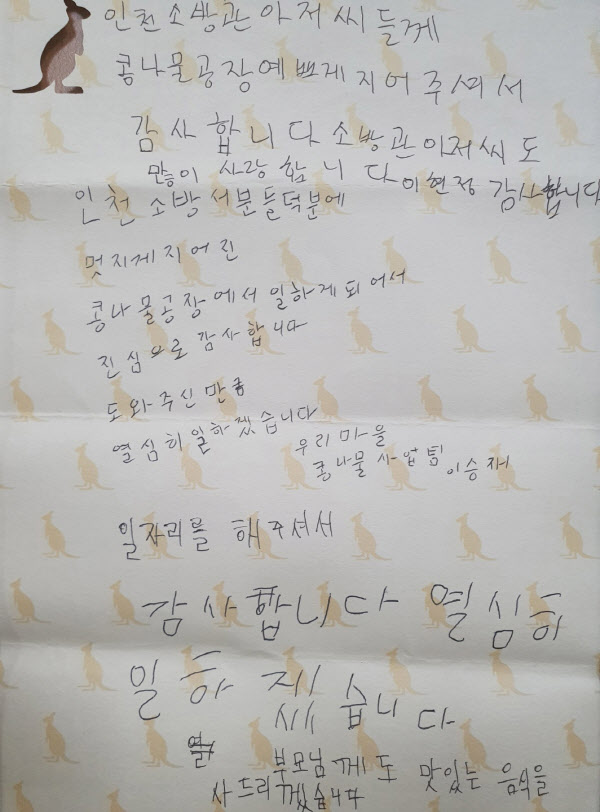 인천소방관아저씨들께
콩나물공장예쁘게지어주셔서
감사합니다소방관아저씨도
많이 사랑합니다이현정 감사합니다
인천소방서분들덕분에
멋지게지어진
콩나물공장에서일하게되어서
진심으로감사합니다
도와주신만큼
열심히일하겠습니다
우리마을
콩나물사업팀 이승재
일자리를 해주셔서
감사합니다 열심히
일하겠습니다
부모님께도 맛있는 음식을
사드리겠습니다